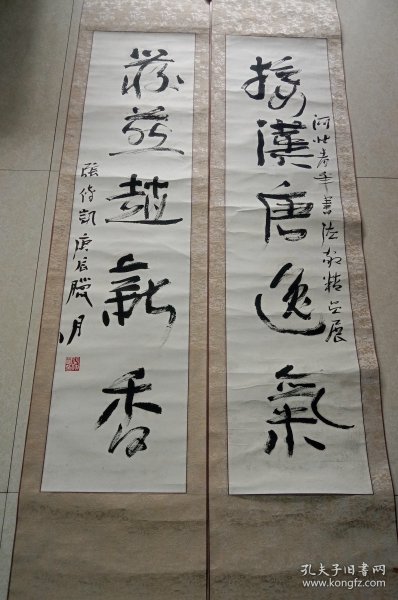 接漢唐逸氣
河北青年書法家精品展
燕趙新香
張凱庚辰臘月
孔夫子旧书网
www.kongfz.com